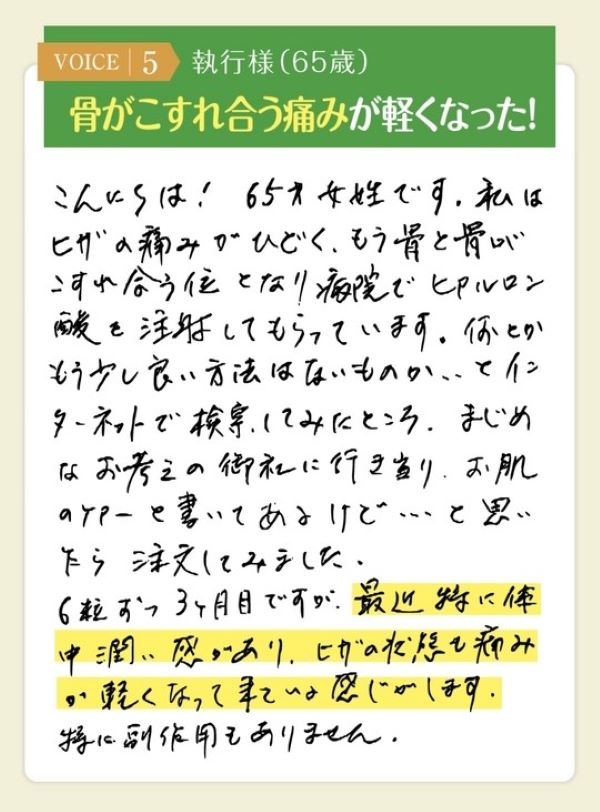 VOICE 5 執行様（65歳）
骨がこすれ合う痛みが軽くなった！
こんにちは！ 65才女性です。私は
ヒザの痛みがひどく、もう骨と骨が
こすれ合う位となり病院でヒアルロン
酸を注射してもらっています。何とか
もう少し良い方法はないものか‥とイン
ターネットで検索してみたところ、まじめ
なお考えの御社に行き当り、お肌
のケアーと書いてあるけど…と思い
たら注文してみました。
6粒ずつ3ヶ月目ですが、最近特に体
中潤い感があり、ヒザの状態も痛み
が軽くなって来ている感じがします。
特に副作用もありません。